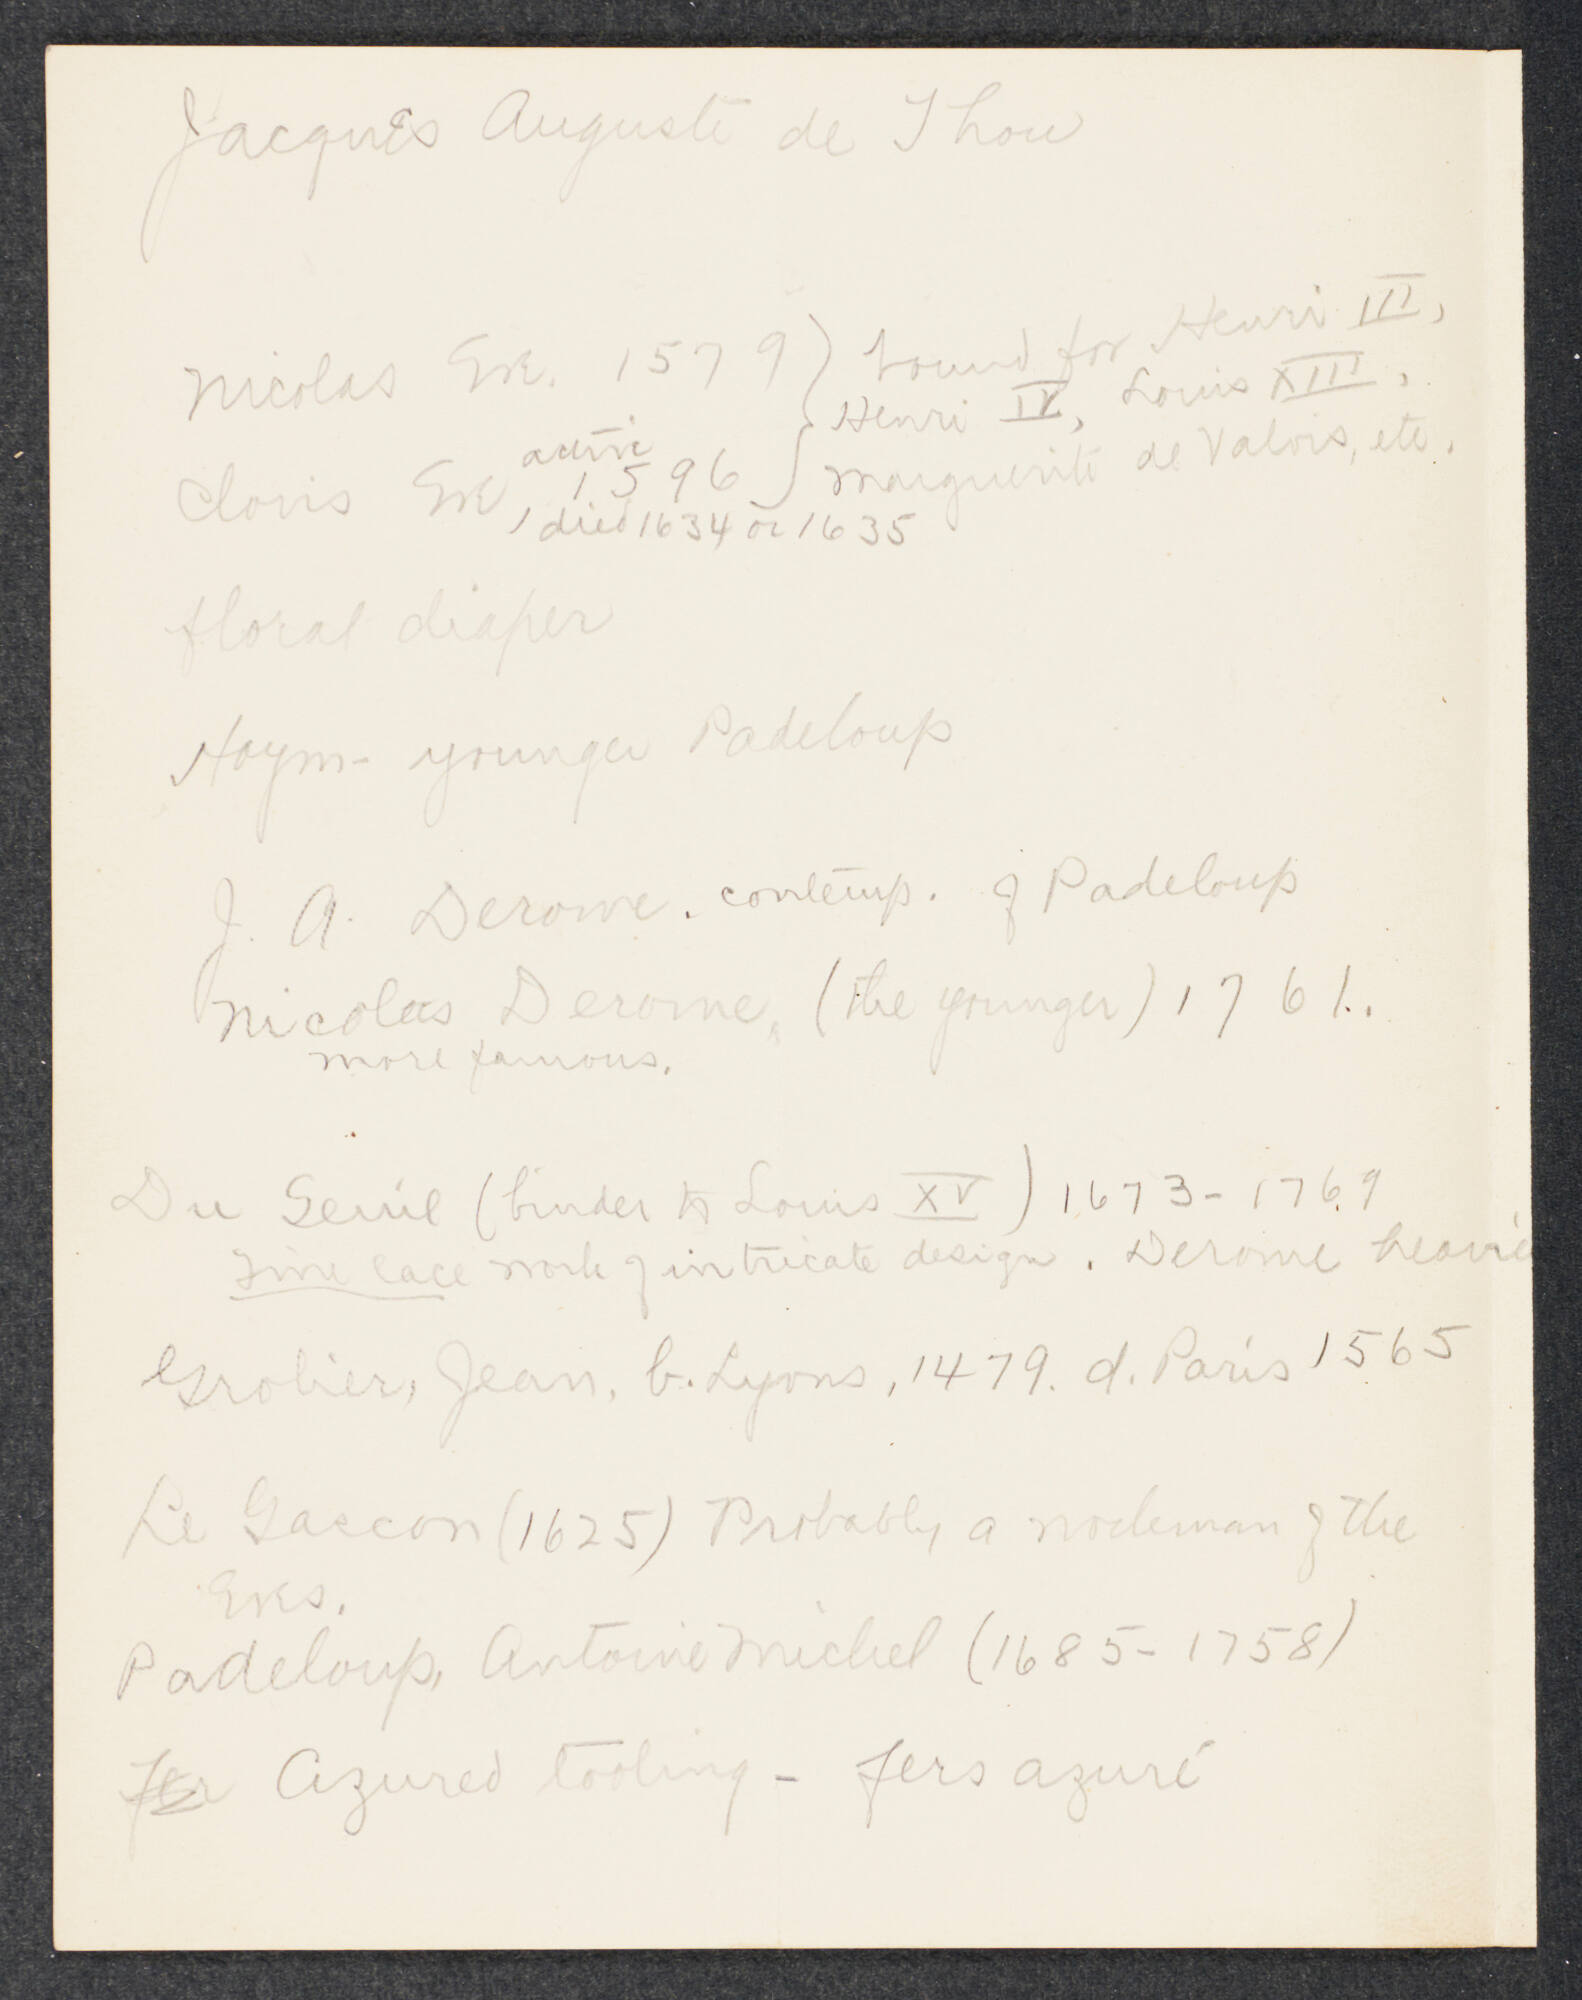 Jacques Auguste de Thou
Nicolas Eve. 1579 } bound for Henri III,
Henri IV, Louis XIII,
Clovis Eve, active 1596 } Marguerite de Valois, etc.
, died 1634 or 1635
floral diaper
Hoym - younger Padeloup
J. A. Derome. contemp. of Padeloup
Nicolas Derome, (the younger) 1761.
more famous.
Du Seuil (binder to Louis XV) 1673-1769
Fine lace work of intricate design. Derome heavie
Grolier, Jean, b. Lyons, 1479. d. Paris 1565
Le Gascon (1625) Probably a workman of the
Eves.
Padeloup, Antoine Michel (1685-1758)
Fer Azured tooling - fers azuré